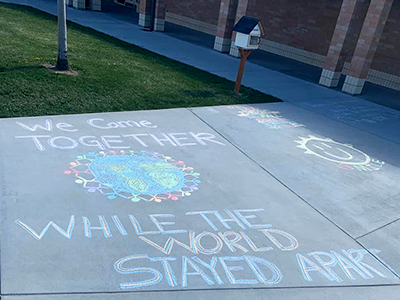 We Come
TOGETHER
WHILE THE
WORLD
STAYED APART